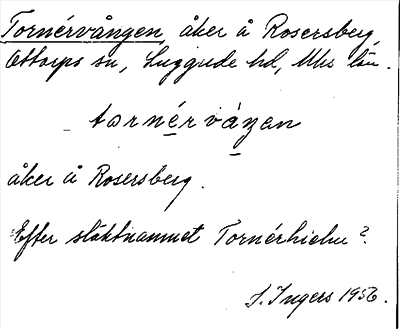 Tornérvången, åker å Rosersberg,
Ottorps sn, Luggude hd, Mhs län.
tornérváŋen
åker å Rosersberg.
Efter släktnamnet Tornérhielm?
I. Ingers 1956.